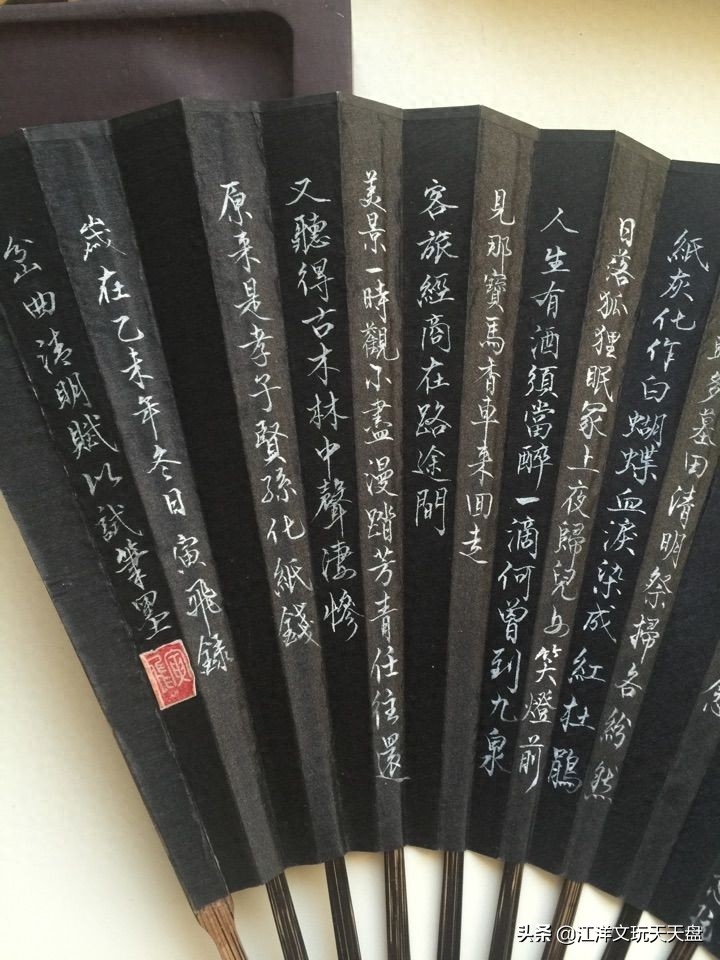 多墓田清明祭掃各紛然
紙灰化作白蝴蝶血淚染成紅杜鵑
日落狐狸眠冢上夜歸兒女笑燈前
人生有酒須當醉一滴何曾到九泉
見那寶馬香車来回走
客旅經商在路途間
美景一時觀不盡漫踏芳青任往還
又聽得古木林中聲淒慘
原来是孝子賢孫化紙錢
歲在乙未年冬日寅飛錄
岔曲清明賦以試筆墨
头条 @江洋文玩天天盘